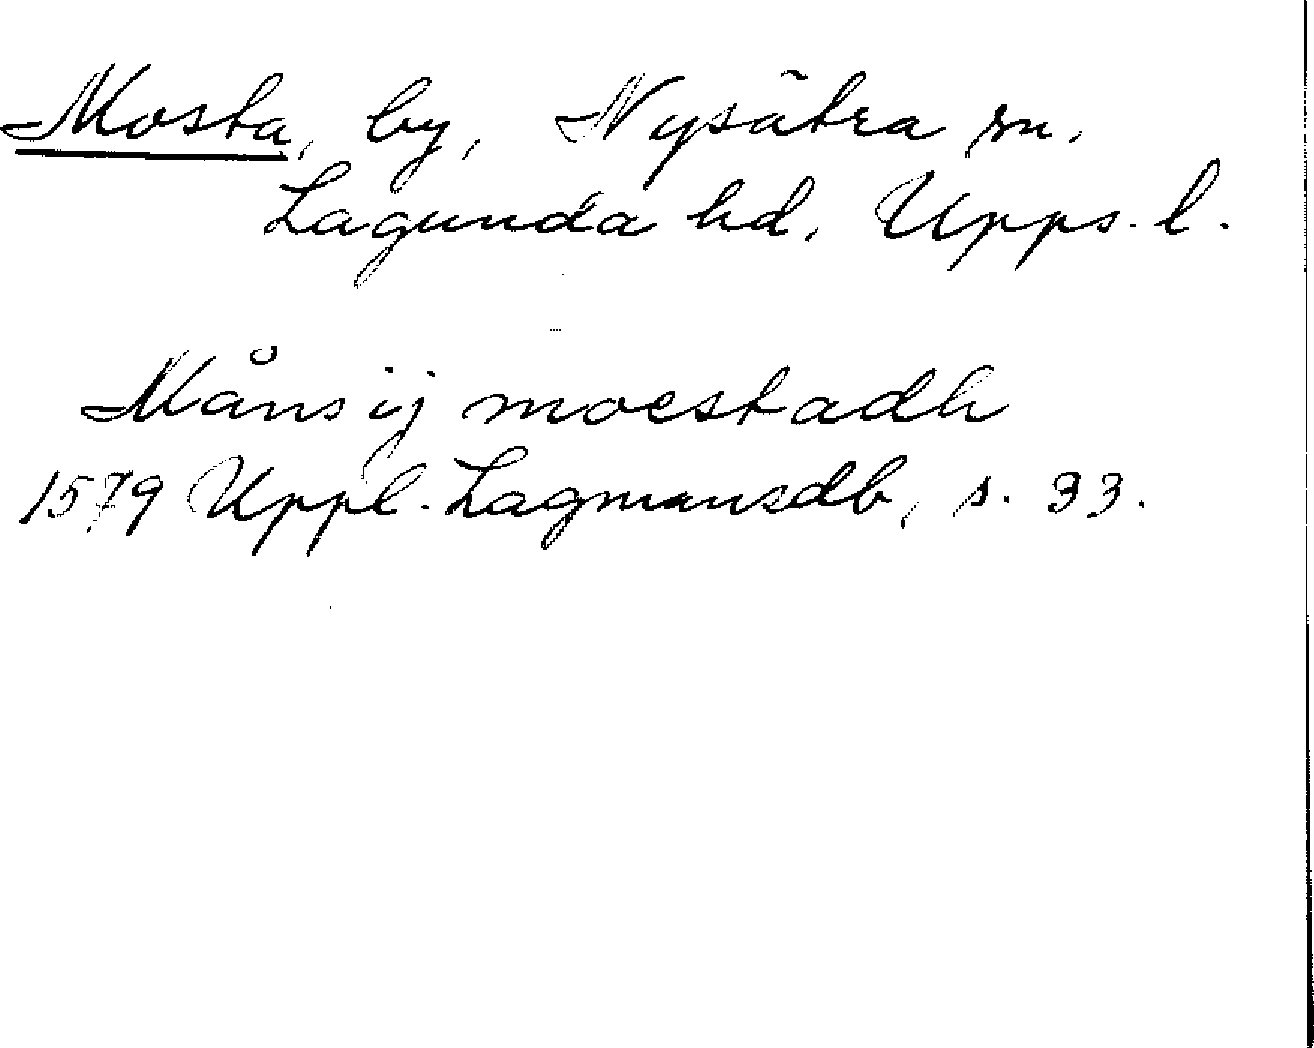 Mosta, by, Nysätra sn.
Lagunda hd, Upps. l.
Måns ij moestadh
1579 Uppl. Lagmansdb, s. 33.